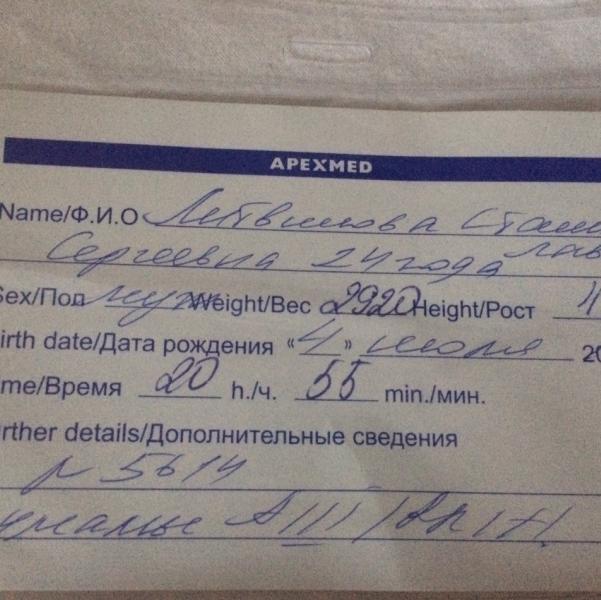 APEXMED
Name/Ф.И.О Литвинова Стани
Сергеевна 24 года лав
Sex/Пол муж Weight/Вес 2920 Height/Рост 4
irth date/Дата рождения «4» июля 20
me/Время 20 h./ч. 55 min./мин.
rther details/Дополнительные сведения
р 5614